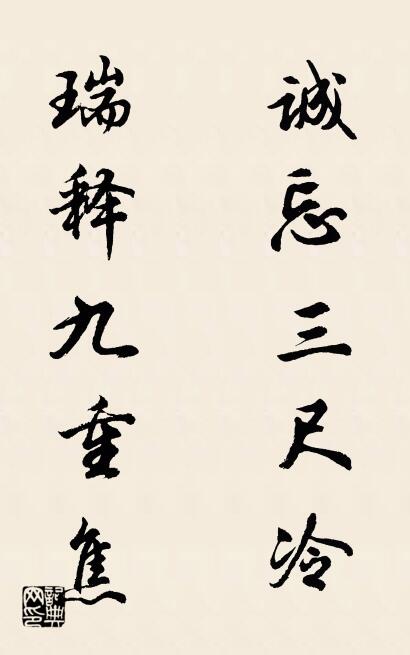 诚忘三尺冷
瑞释九重焦